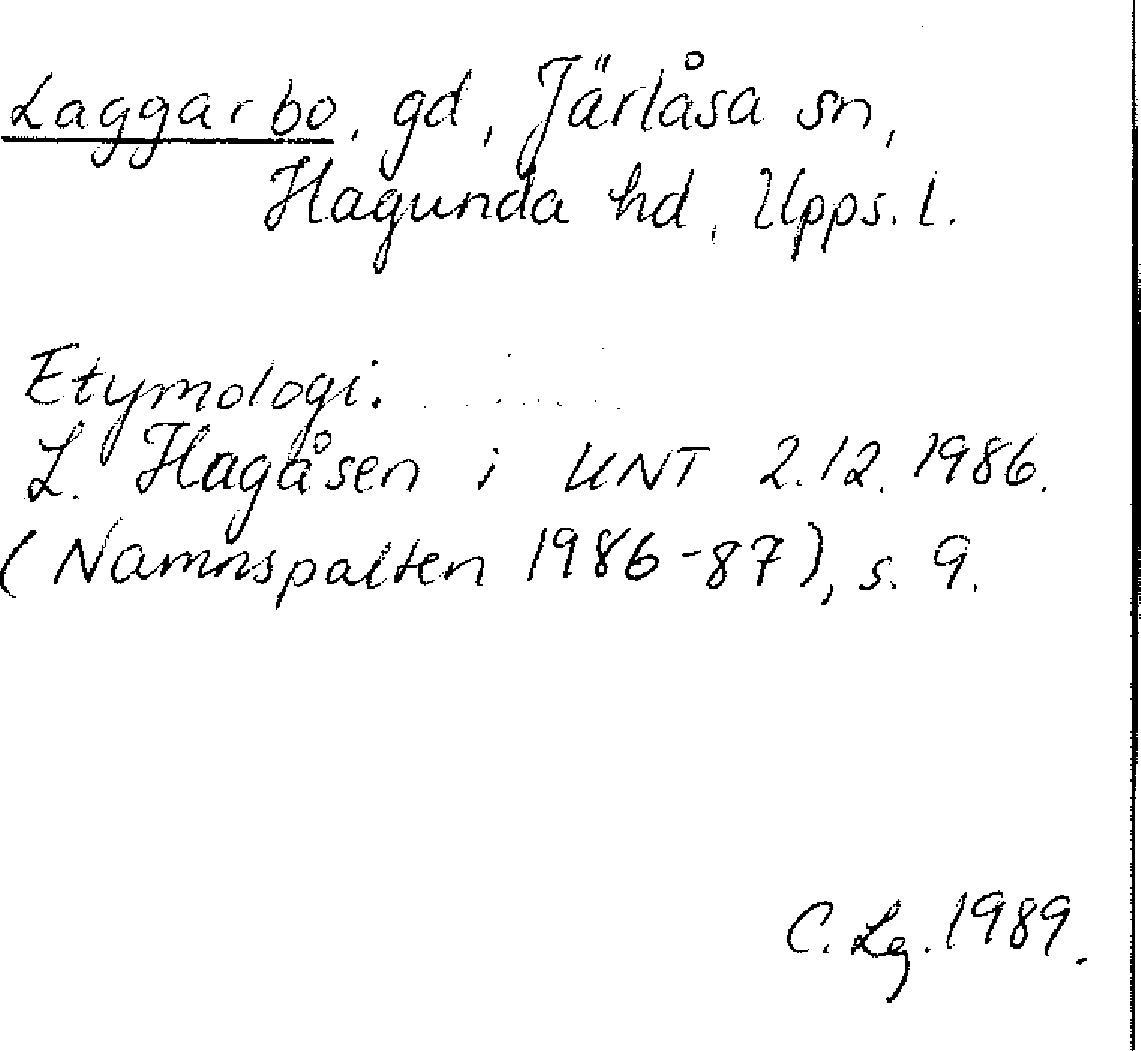 Laggarbo, gd, Järlåsa sn,
Hagunda hd, Upps. l.
Etymologi.
L. Hagåsen i UNT 2.12.1986.
(Namnspalten 1986-87), s. 9.
C. Lg. 1989.